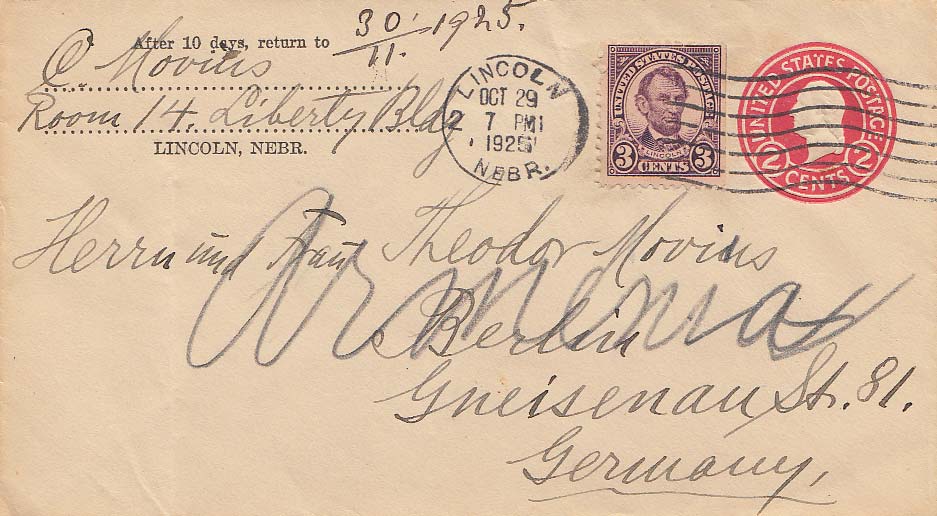 After 10 days, return to
30/11. 1925.
C. Movius
Room 14. Liberty Bldg
LINCOLN, NEBR.
LINCOLN
OCT 29
7 PM
1925
NEBR.
2
UNITED STATES POSTAGE
LINCOLN
3 CENTS 3
UNITED STATES POSTAGE
2 CENTS 2
Herrn und Frau Theodor Movius
Berlin
Gneisenau St. 81.
Germany.